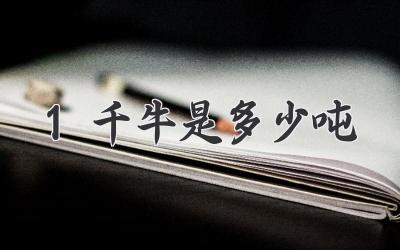 1 千牛是多少吨